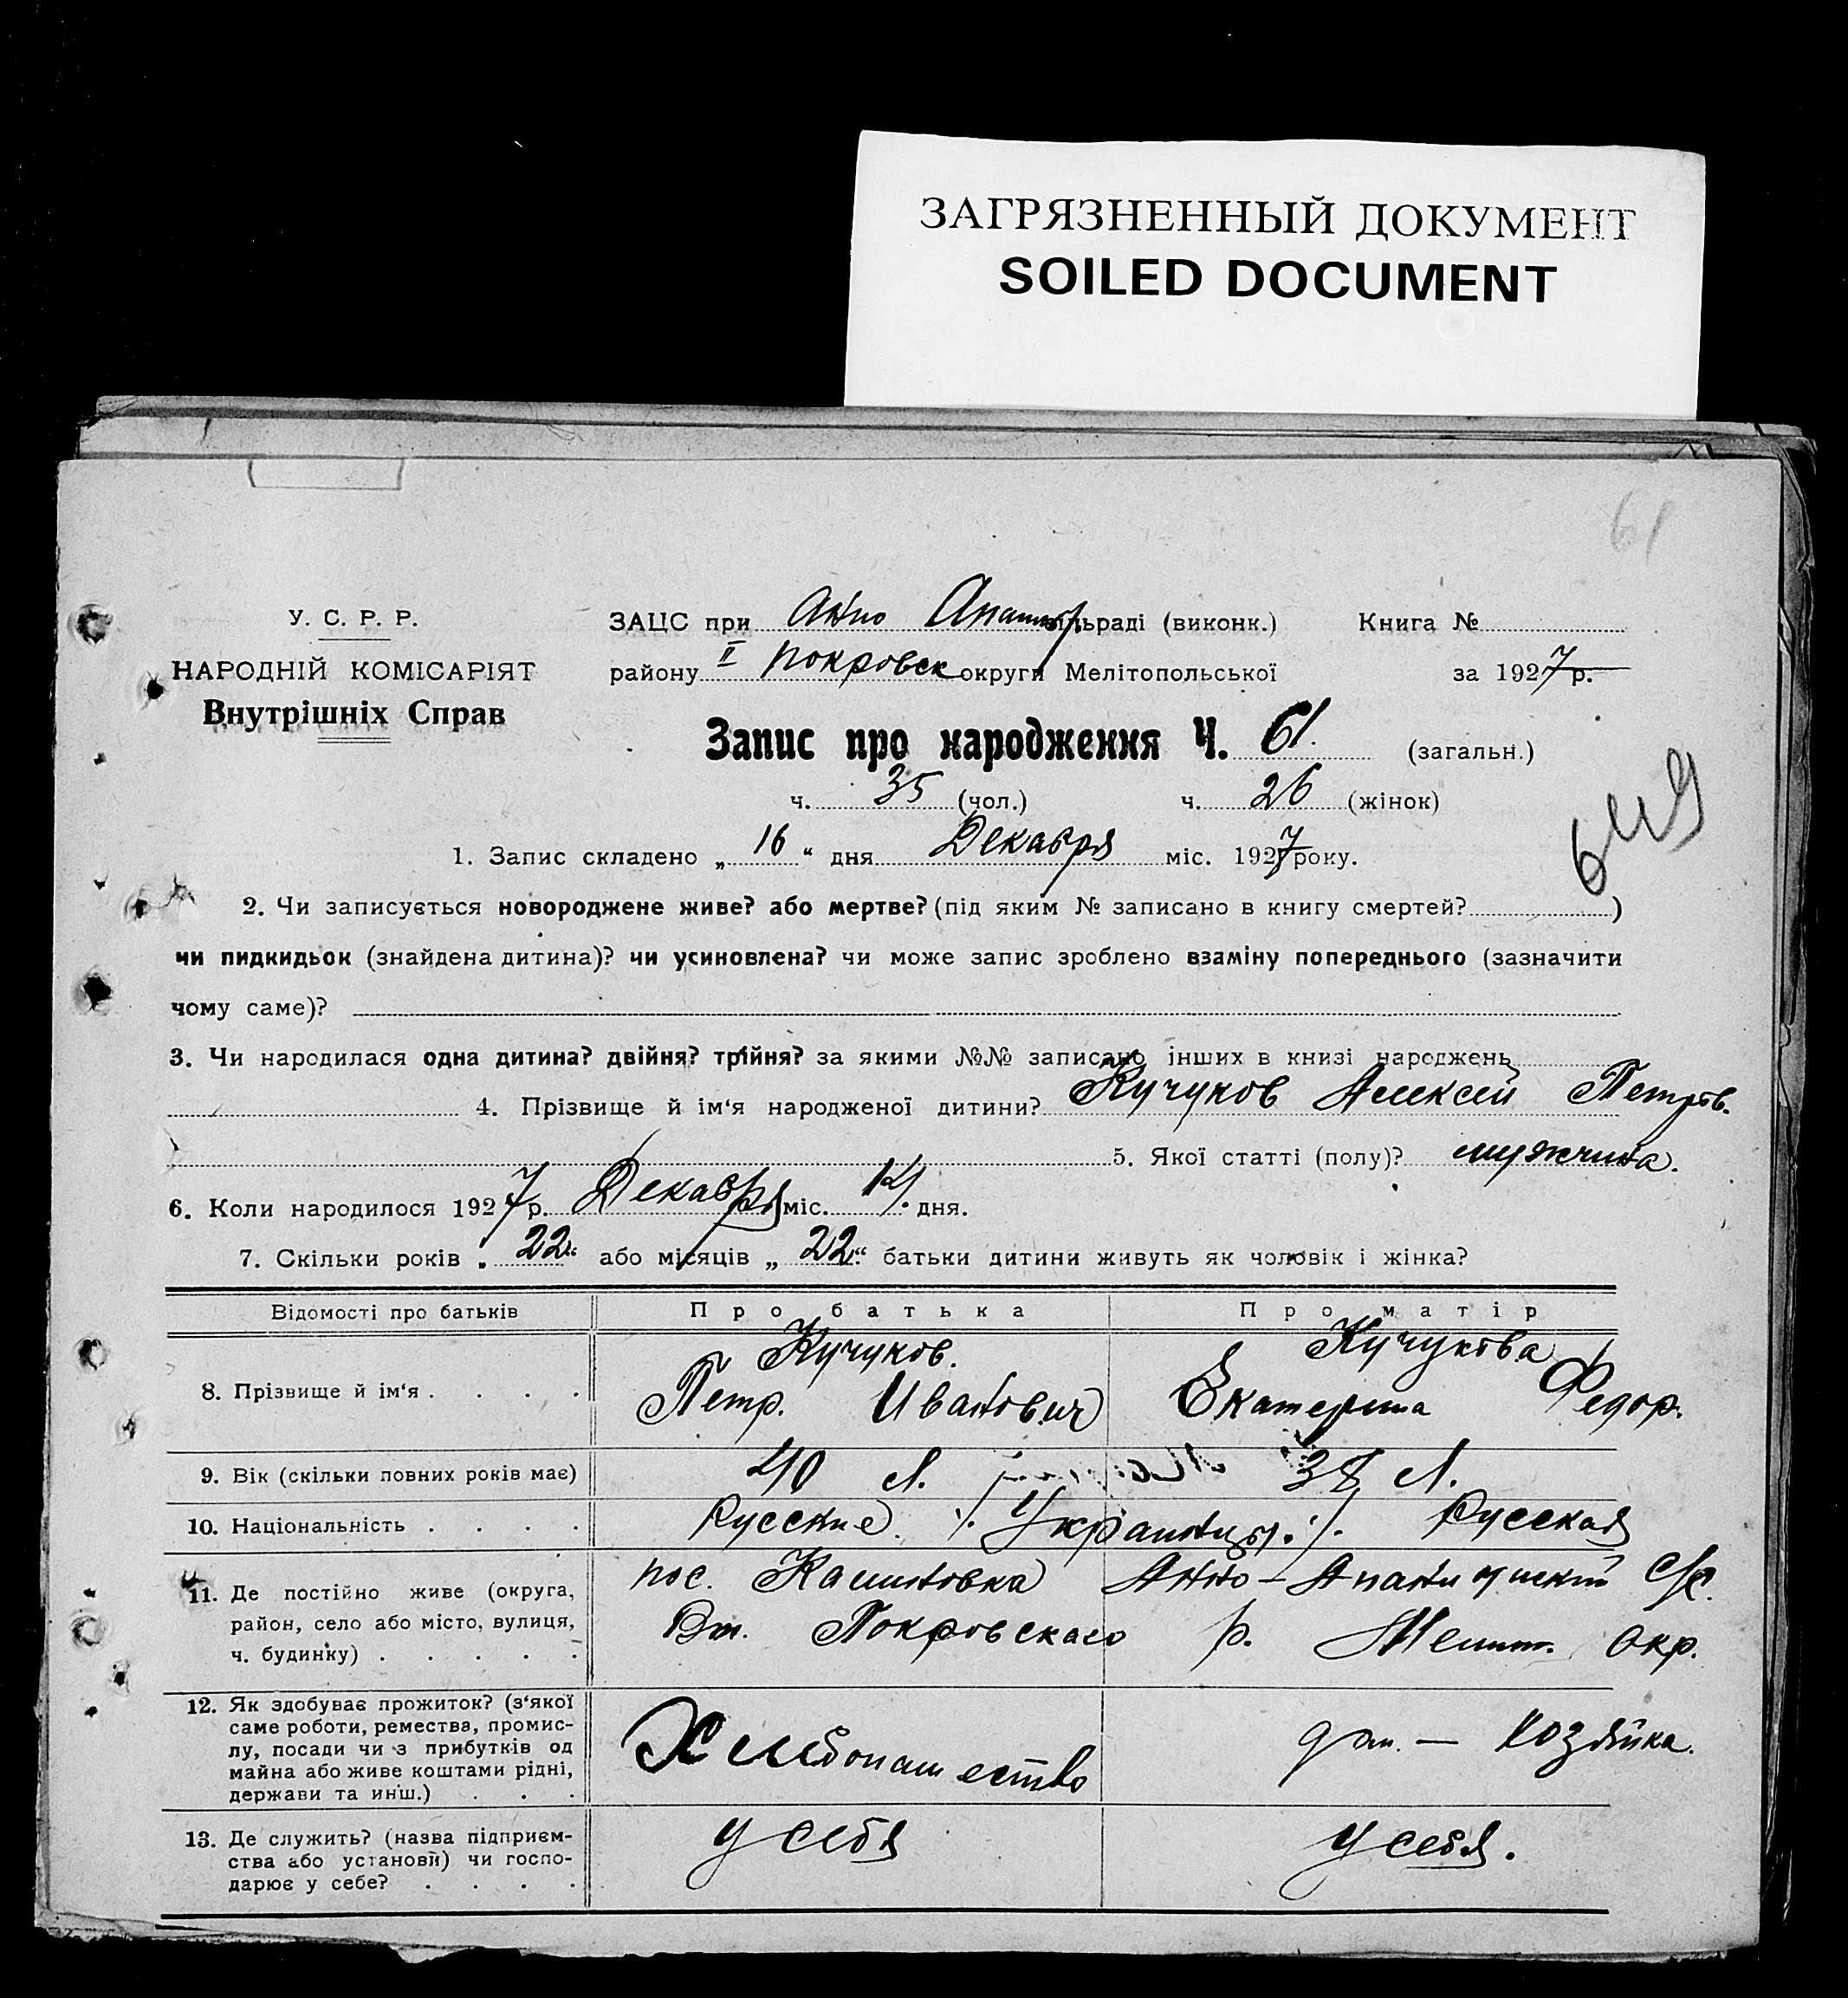 ЗАГРЯЗНЕННЫЙ ДОКУМЕНТ
SOILED DOCUMENT
61
У. С. Р. Р.
НАРОДНІЙ КОМІСАРІЯТ
Внутрішніх Справ
ЗАЦС при Анно сільраді (виконк.) Книга №
району II Покровск округи Мелітопольської за 1927 р.
Запис про народження Ч. 61. (загальн.)
ч. 35 (чол.) ч. 26 (жінок)
1. Запис складено „ 16 “ дня Декабря міс. 1927 року.
2. Чи записується новороджене живе? або мертве? (під яким № записано в книгу смертей? )
чи пидкидьок (знайдена дитина)? чи усиновлена? чи може запис зроблено взаміну попереднього (зазначити
чому саме)?
3. Чи народилася одна дитина? двійня? трійня? за якими №№ записано інших в книзі народжень
4. Прізвище й ім‘я народженої дитини? Кучуков Алексей Петров.
5. Якої статті (полу)? мужчина.
6. Коли народилося 1927 р. Декабря міс. 14. дня.
7. Скільки років „ 22 “ або місяців „ 22 “ батьки дитини живуть як чоловік і жінка?
Відомості про батьків Про батька Про матір
8. Прізвище й ім‘я . . . . Кучуков. Петр. Иванович Кучукова Екатерина Федор.
9. Вік (скільки повних років має) 40 л. 38 л.
10. Національність . . . . Русские. ./. Украинцы. ./. Русская
11. Де постійно живе (округа, район, село або місто, вулиця, ч. будинку) . . . . . пос. Анно – с/с.
Вт. Покровскаго р. Мелит. Окр.
12. Як здобуває прожиток? (з‘якої саме роботи, ремества, промислу, посади чи з прибутків од майна або живе коштами рідні, держави та инш.) . . . Хлебопашество дом. — хозяйка.
13. Де служить? (назва підприємства або установи) чи господарює у себе? . . . . у себя у себя.